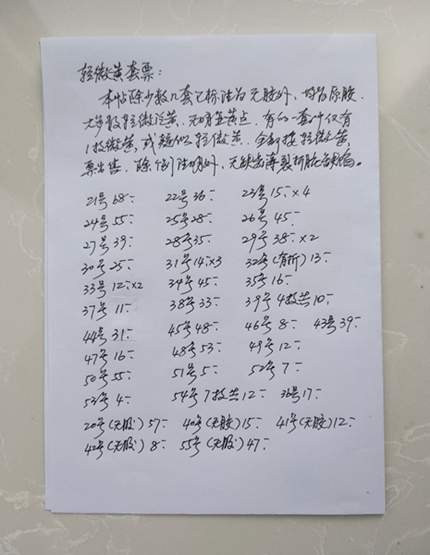 轻微黄套票:
本帖除少数几套已标注为无胶外,均为原胶,
大多数轻微泛黄,无明显黄点,有的一套中仅有
1枚微黄,或疑似轻微黄,全部按轻微黄
票出售,除信门注明外,无缺齿薄裂折脏等缺陷。
21号68- 22号36- 23号15-×4
24号55- 25号28- 26号45-
27号39- 28号35- 29号38-×2
30号25- 31号14-×3 32号(有折)13-
33号12-×2 34号45- 35号16-
37号11- 38号33- 39号4枚共10-
44号31- 45号48- 46号8- 43号39-
47号16- 48号53- 49号12-
50号55- 51号5- 52号7-
53号4- 54号7枚共12- 36号17-
20号(无胶)57- 40号(无胶)15- 41号(无胶)12-
42号(无胶)8- 55号(无胶)47-